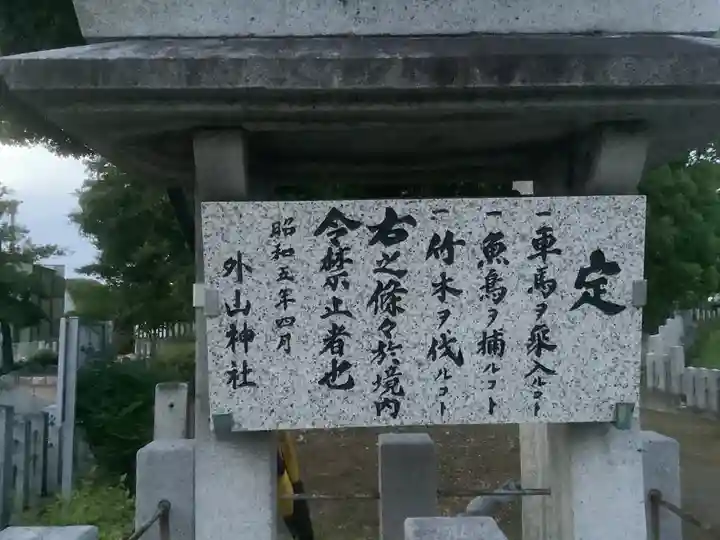 定
一車馬ヲ乗入ルコト
一魚鳥ヲ捕ルコト
一竹木ヲ伐ルコト
右之條々於境内
令禁止者也
昭和五年四月
外山神社